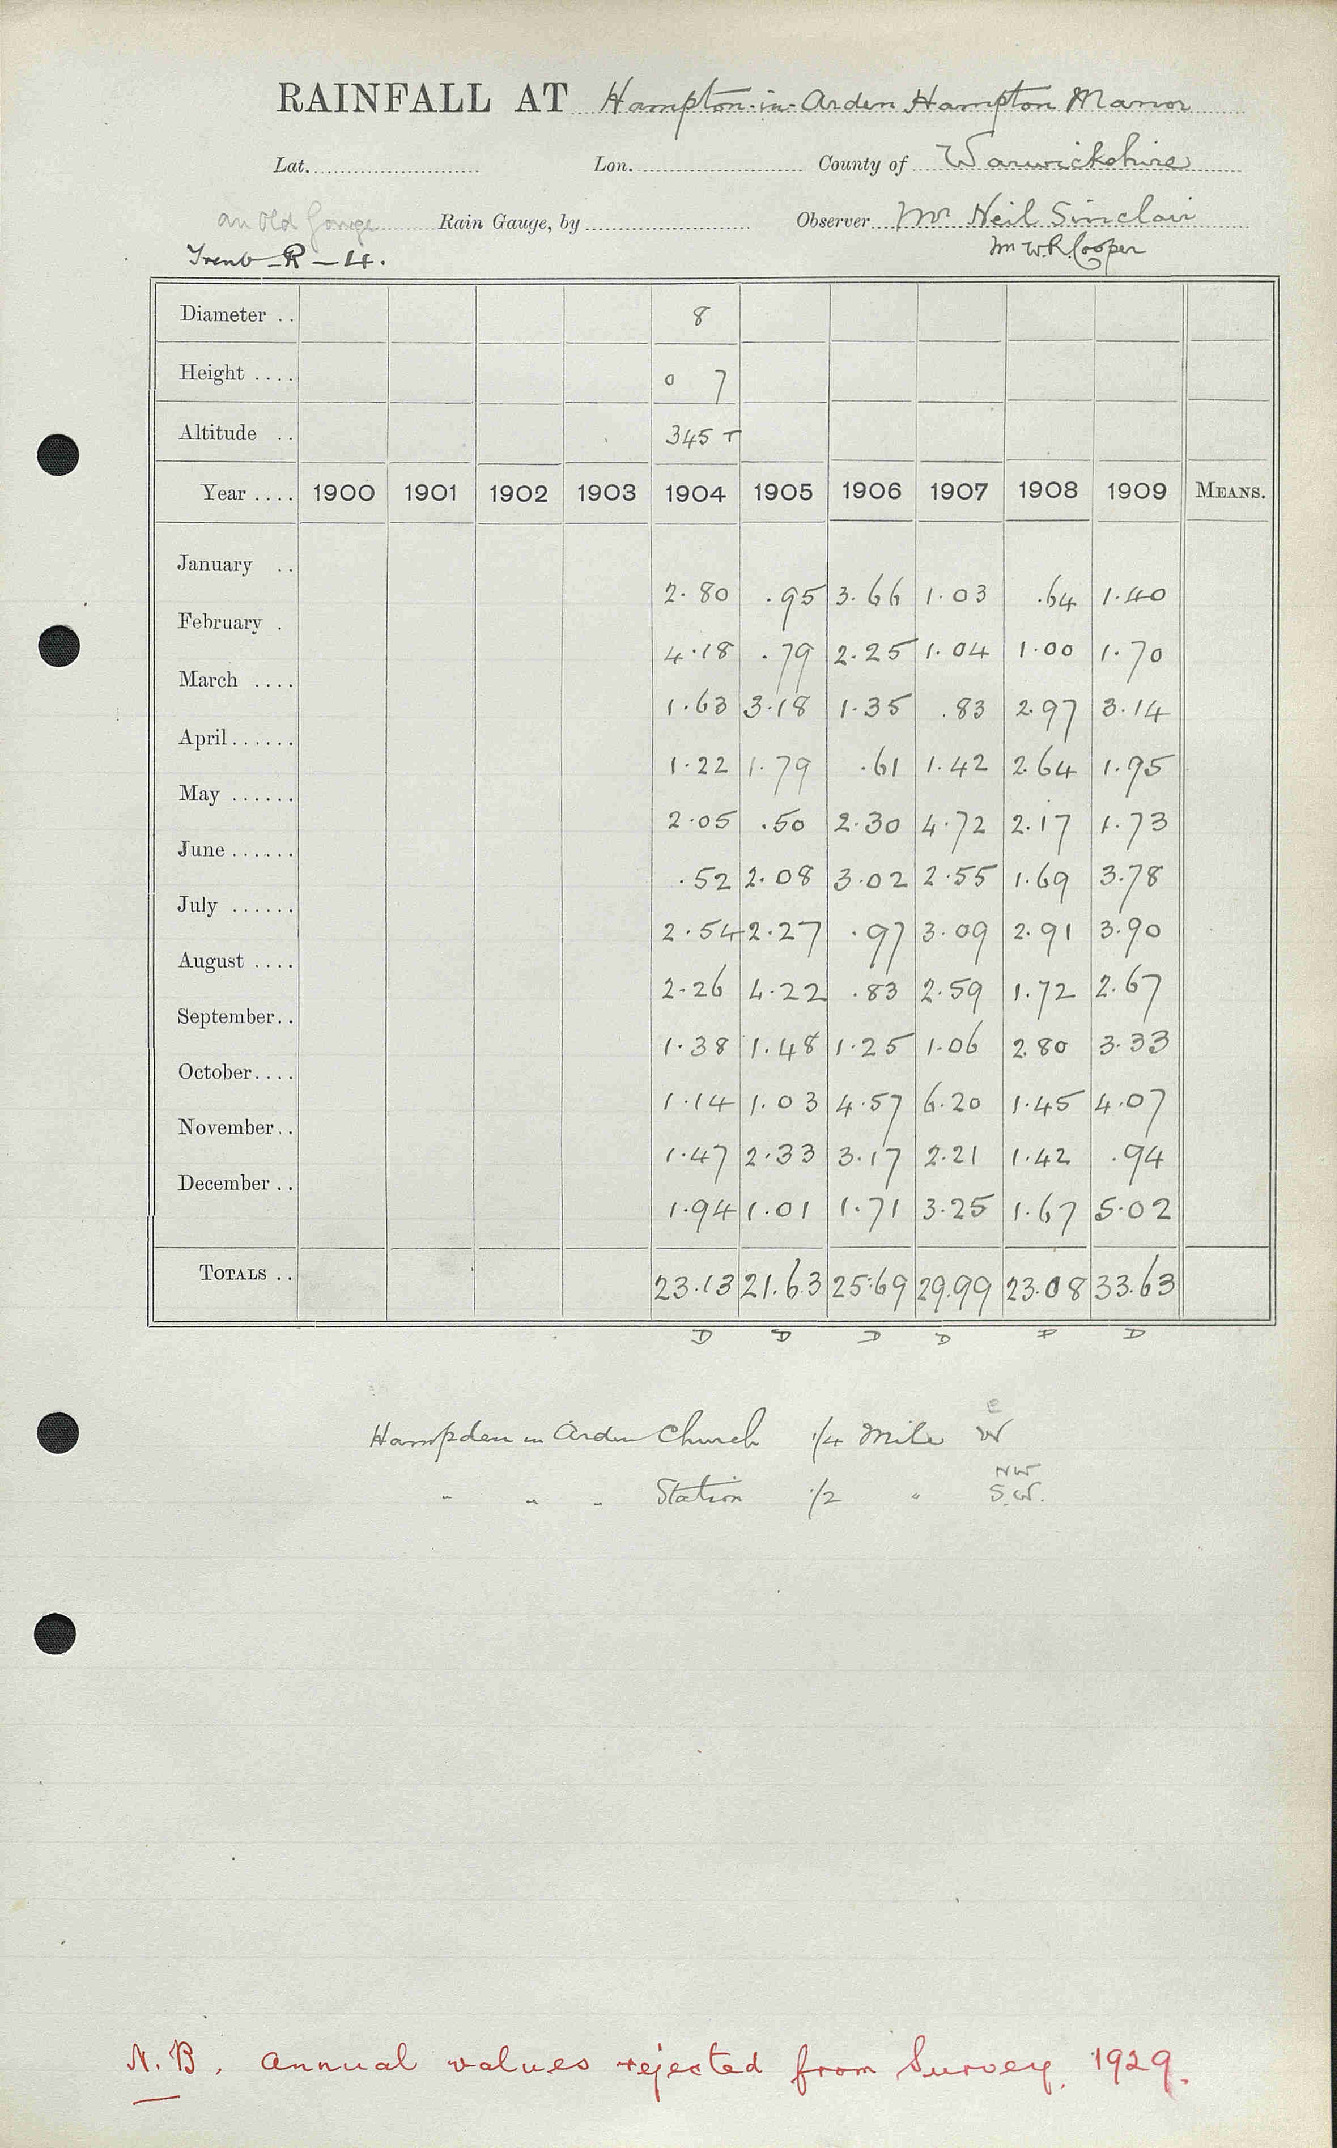 RAINFALL AT Hampton-in-Arden Hampton Manor
Lat. Lon. County of Warwickshire
an old Gauge Rain Gauge, by Observer Mr Neil Sinclair
Trent - R - 4. Mr W.R. Cooper
Diameter .. 8
Height .... 0 7
Altitude .. 345 T
Year .... 1900 1901 1902 1903 1904 1905 1906 1907 1908 1909 MEANS.
January .. 2.80 .95 3.66 1.03 .64 1.40
February . 4.18 .79 2.25 1.04 1.00 1.70
March .... 1.63 3.18 1.35 .83 2.97 3.14
April...... 1.22 1.79 .61 1.42 2.64 1.95
May ...... 2.05 .50 2.30 4.72 2.17 1.73
June...... .52 2.08 3.02 2.55 1.69 3.78
July ...... 2.54 2.27 .97 3.09 2.91 3.90
August .... 2.26 4.22 .83 2.59 1.72 2.67
September.. 1.38 1.48 1.25 1.06 2.80 3.33
October.... 1.14 1.03 4.57 6.20 1.45 4.07
November.. 1.47 2.33 3.17 2.21 1.42 .94
December .. 1.94 1.01 1.71 3.25 1.67 5.02
TOTALS .. 23.13 21.63 25.69 29.99 23.08 33.63
D D D D D D
E
Hampden in Arden Church 1/4 Mile W
NW
" " " Station 1/2 " S.W.
N.B. Annual values rejected from Survey. 1929.